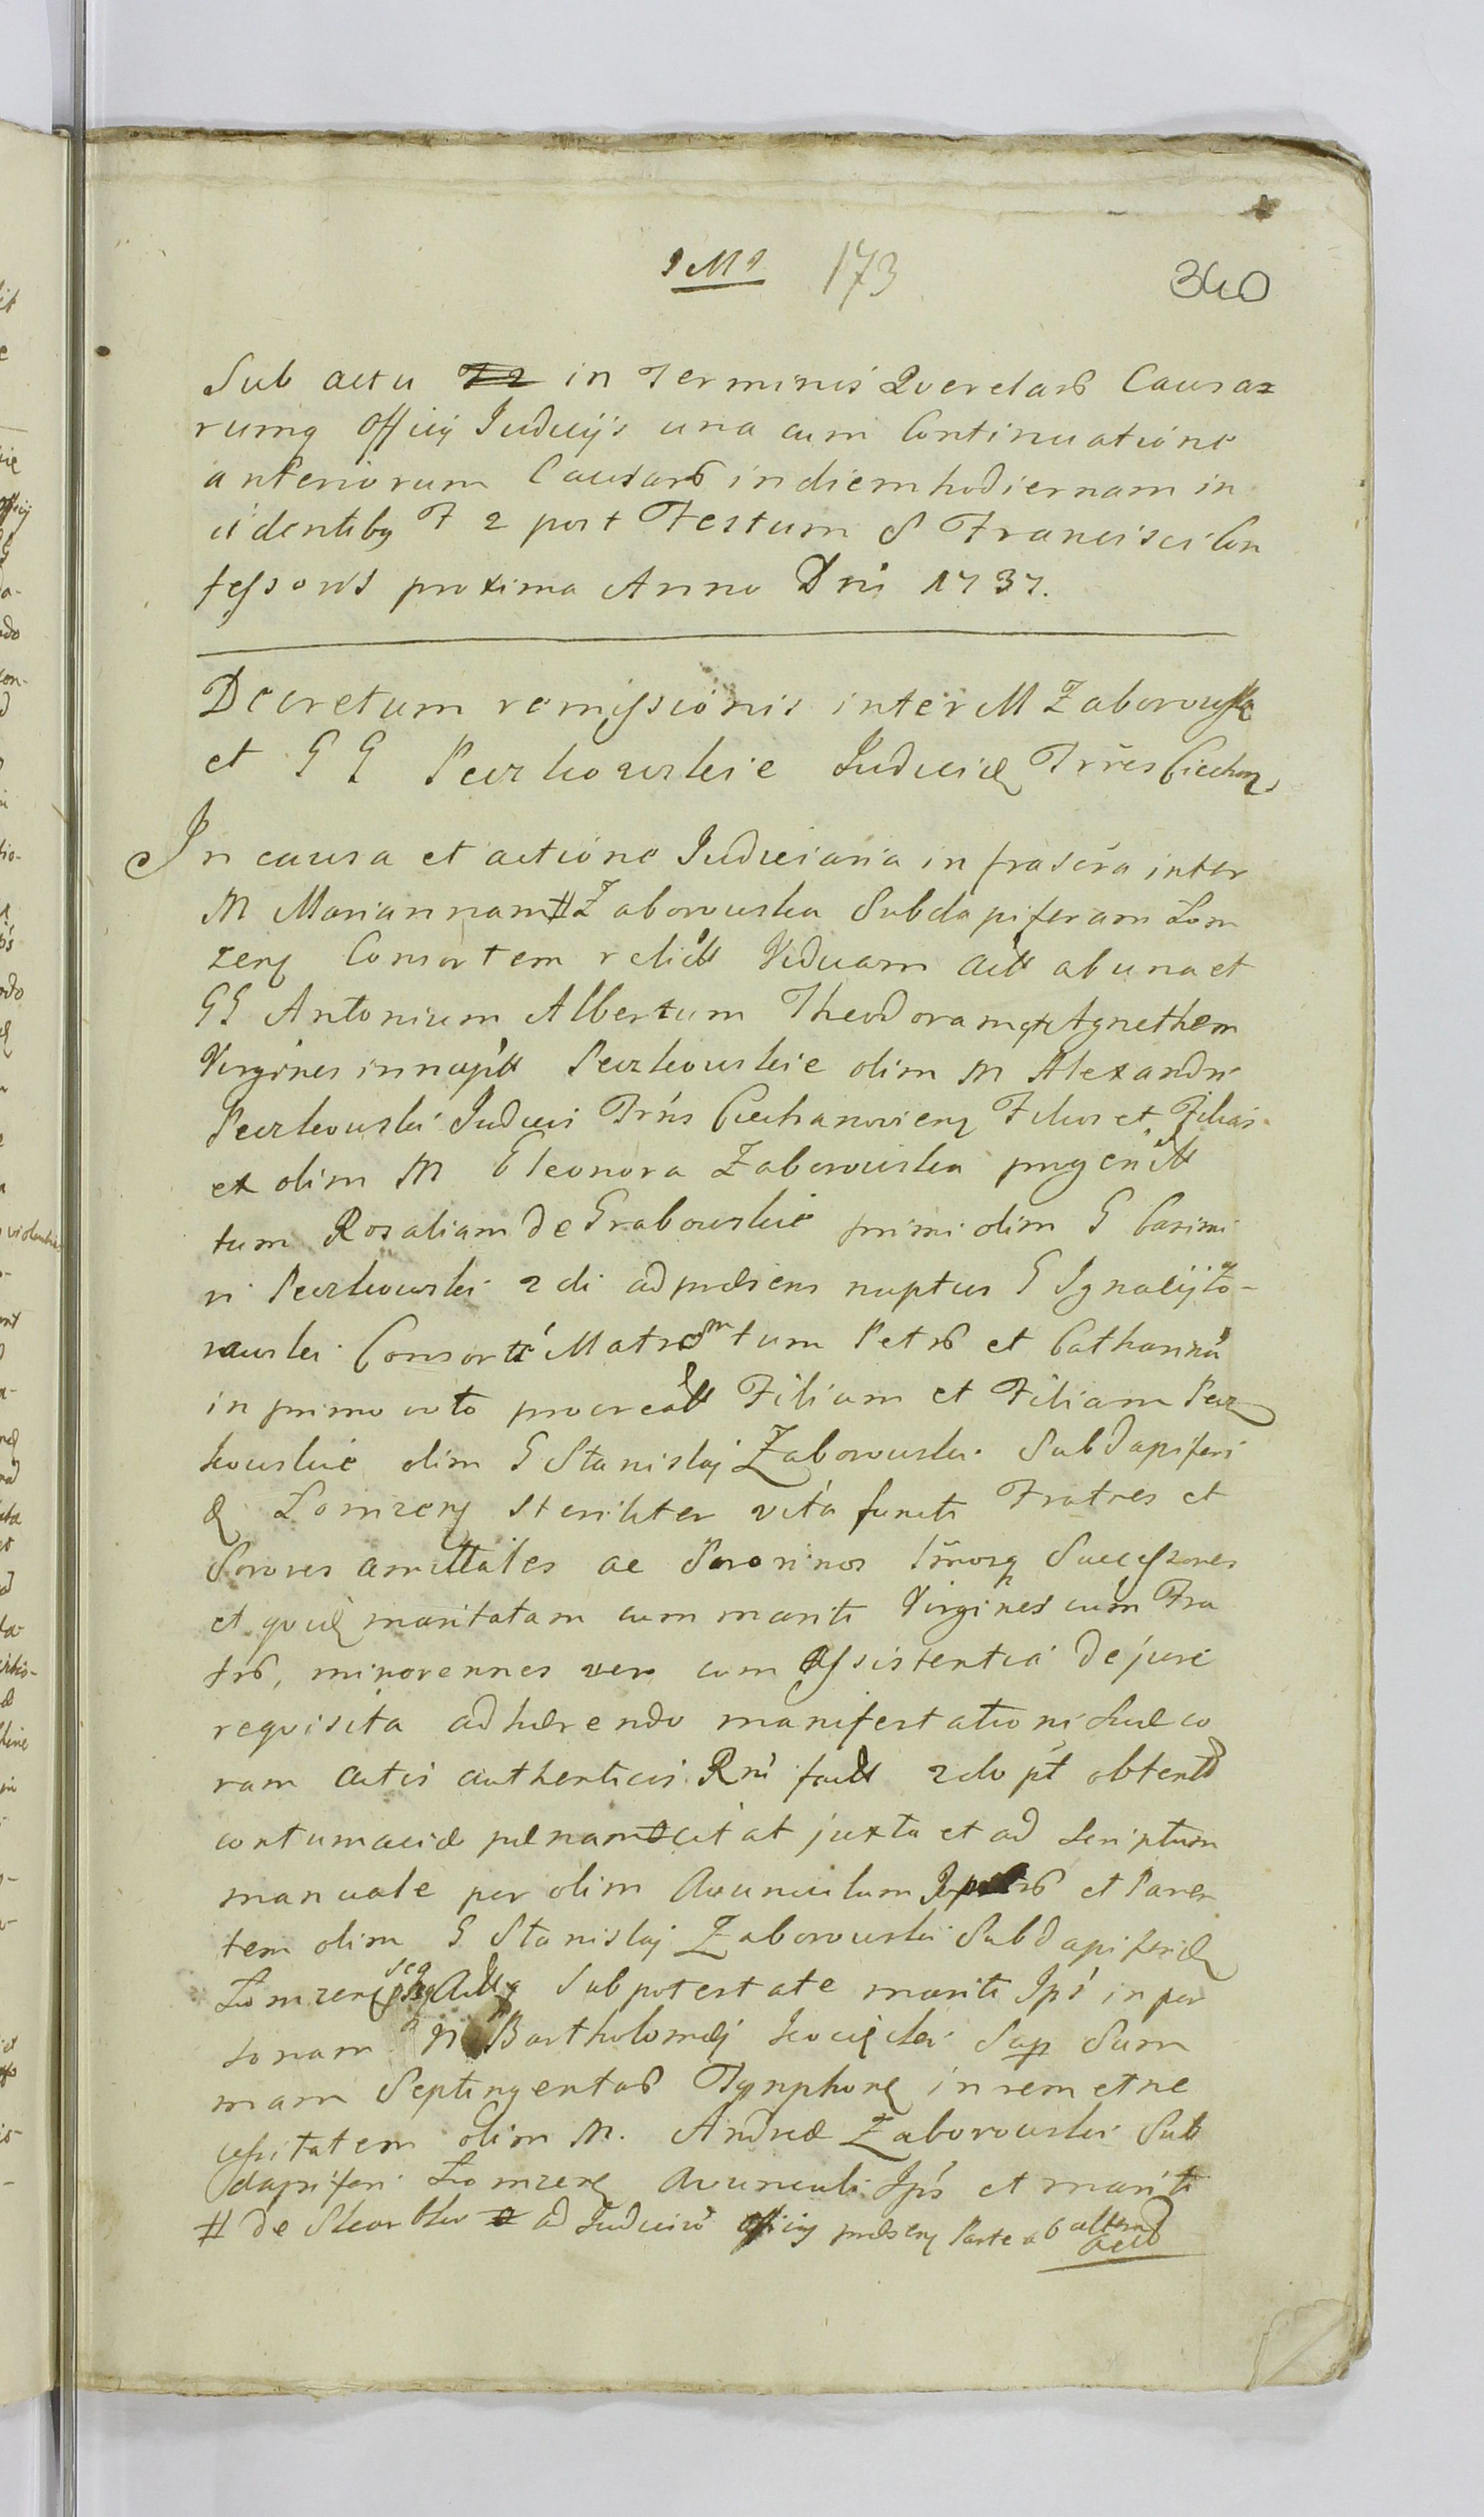 IMI 173 340
Sub actu in Terminis Querelarũ Causa=
rumq Officij Judicijs una cum Continuatione
anteriorum Causarũ in diem hodiernam in
cidentibq F 2 post Festum S Francisci Con
fessoris proxima Anno Dni 1737.
Decretum remissionis inter M Zaborowska
et G G Pczkowskie Judicidæ Trrẽs Ciechan
In causa et actione Judiciaria infrascra inter
M Mariannam # Zaborowska Subdapiferam Lom
zen Consortem relict Viduam act ab una et
GG Antonium Albertum Theodoram et Agnethem
Virgines innupt Pczkowskie olim M Alexandri
Pczkowski Judicis Trris Ciechanovien Filios et Filias
et olim M Eleonora Zaborowska progenit
tum Rosaliam de Grabowskie primi olim G Casimi
ri Pczkowski 2di ad præsens nuptus G Ignatij
Consort Matrem tum Petrũ et Catharinã
in primo voto procreat Filium et Filiam Pcz
kowskie olim G Stanislai Zaborowski Subdapiferi
dæ Lomzen steriliter vita functi Fratres et
Sorores amittales ac Sororinos Successores
et quidẽ maritatam cum mariti Virgines cum Fra
trũ, minorennes vero cum assistentia de jure
requisita adhærendo manifestationi suæ co
ram actis authenticis Rni fact 2do pt obtent
contumaciæ pænam citat juxta et ad scriptum
manuale per olim Avunculum et Paren
tem olim G Stanislai Zaborowski Subdapiferidæ
Lomzen sub potestate mariti Ipi in per
sonam M Bartholomæi Sap Sum
mam Septingentarũ Tynphon in rem et ne
cessitatem olim M. Andreæ Zaborowski Sub
dapiferi Lomzen Avunculi Ips et mariti
# de ad Judiciũ Officij præsen Parte ab altera